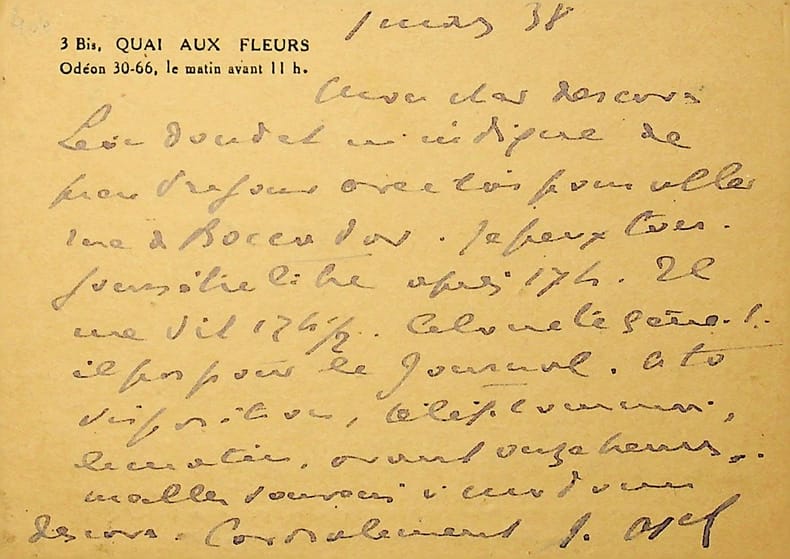 3 Bis, QUAI AUX FLEURS
Odéon 30-66, le matin avant 11 h.
1 mars 38
Mon cher descaves
Léon Daudet m'indique de
prendre jour avec toi pour aller
rue de Boccador. Je peux tou-
jours être libre après 17h. Il
me dit 17h1/2. Cela ne te gêne-t-
il pas pour le Journal. A ta
disposition, téléphone moi,
le matin, avant onze heures.
souvenirs à madame
descaves. Cordialement